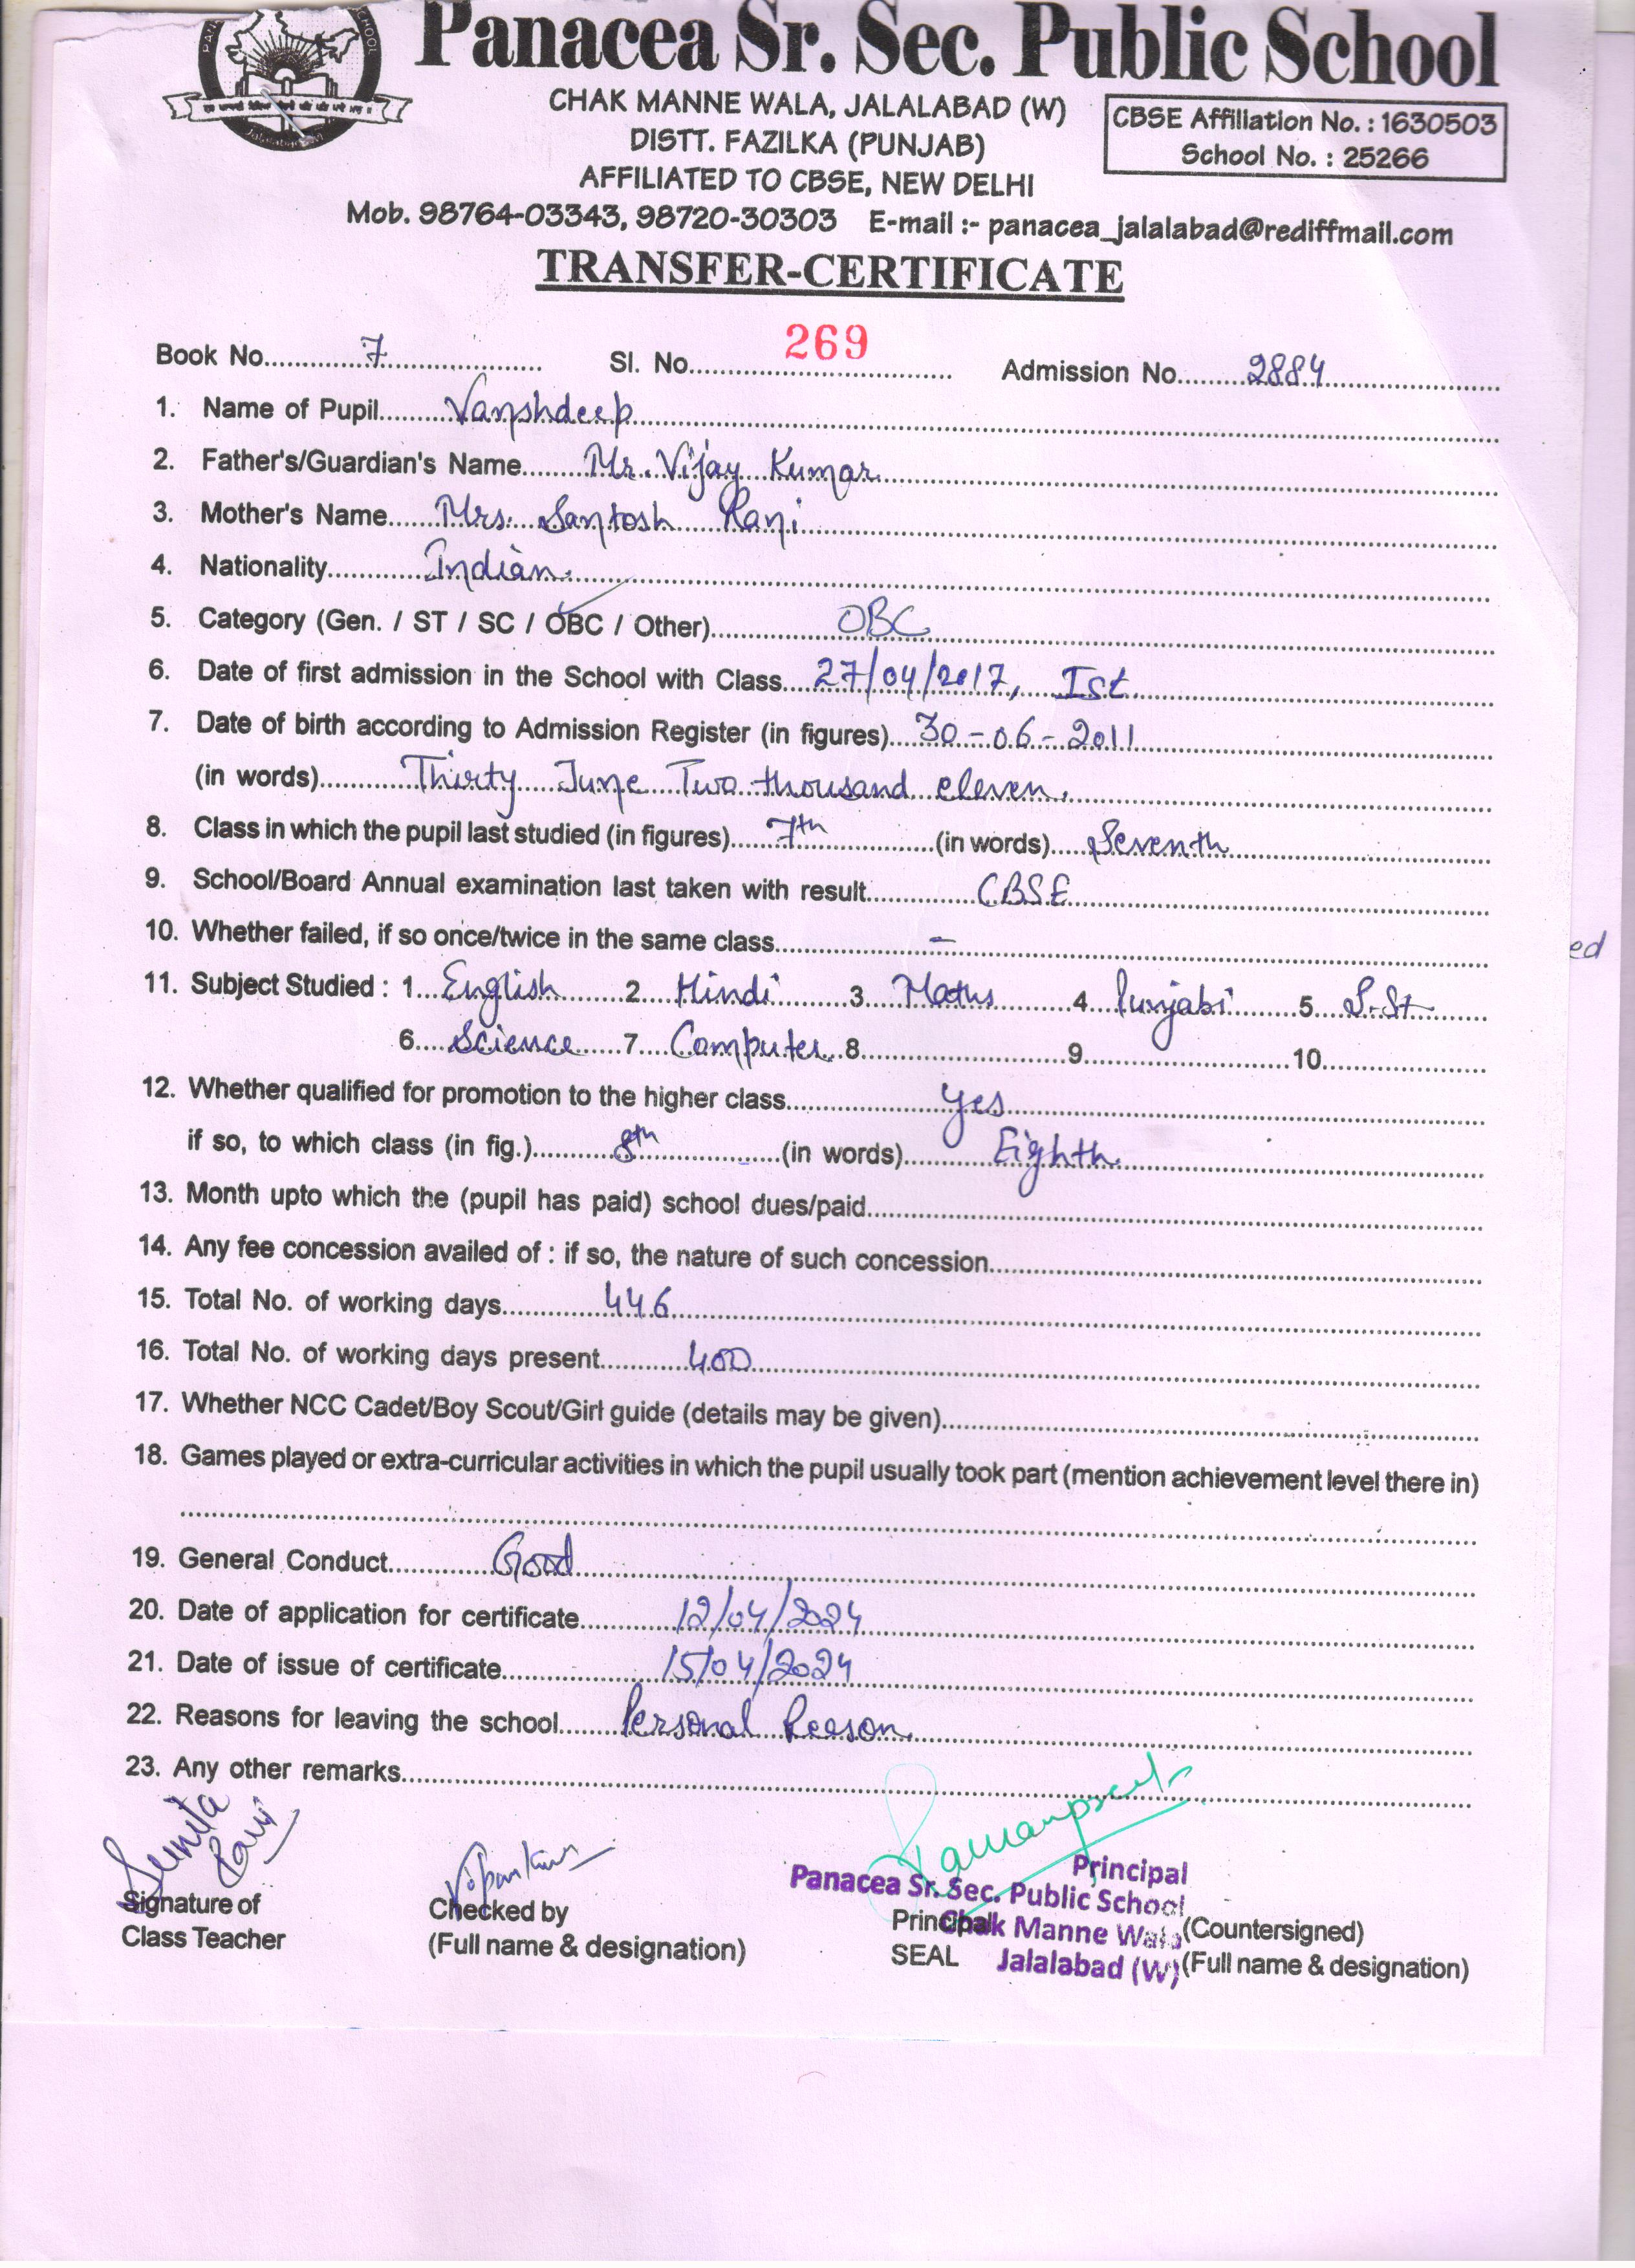 Panacea Sr. Sec. Public School
CHAK MANNE WALA, JALALABAD (W)
DISTT. FAZILKA (PUNJAB)
AFFILIATED TO CBSE, NEW DELHI
CBSE Affiliation No. : 1630503
School No. : 25266
Mob. 98764-03343, 98720-30303 E-mail :- panacea_jalalabad@rediffmail.com
TRANSFER-CERTIFICATE
Book No. 7 Sl. No. 269 Admission No. 2884
1. Name of Pupil Vanshdeep
2. Father's/Guardian's Name Mr. Vijay Kumar
3. Mother's Name Mrs. Santosh Rani
4. Nationality Indian.
5. Category (Gen. / ST / SC / OBC / Other) OBC
6. Date of first admission in the School with Class 27/04/2017, Ist
7. Date of birth according to Admission Register (in figures) 30-06-2011
(in words) Thirty June Two thousand eleven.
8. Class in which the pupil last studied (in figures) 7th (in words) Seventh
9. School/Board Annual examination last taken with result CBSE
10. Whether failed, if so once/twice in the same class –
11. Subject Studied : 1 English 2 Hindi 3 Maths 4 Punjabi 5 S.St
6 Science 7 Computer 8 9 10
12. Whether qualified for promotion to the higher class yes
if so, to which class (in fig.) 8th (in words) Eighth.
13. Month upto which the (pupil has paid) school dues/paid
14. Any fee concession availed of : if so, the nature of such concession
15. Total No. of working days 446
16. Total No. of working days present 400
17. Whether NCC Cadet/Boy Scout/Girl guide (details may be given)
18. Games played or extra-curricular activities in which the pupil usually took part (mention achievement level there in)
19. General Conduct Good
20. Date of application for certificate 12/04/2024
21. Date of issue of certificate 15/04/2024
22. Reasons for leaving the school Personal Reeson
23. Any other remarks
Sunita Rani
Signature of
Class Teacher
Checked by
(Full name & designation)
Principal
Panacea Sr. Sec. Public School
Chak Manne Wala
Jalalabad (W)
Principal (Countersigned)
SEAL (Full name & designation)
ed